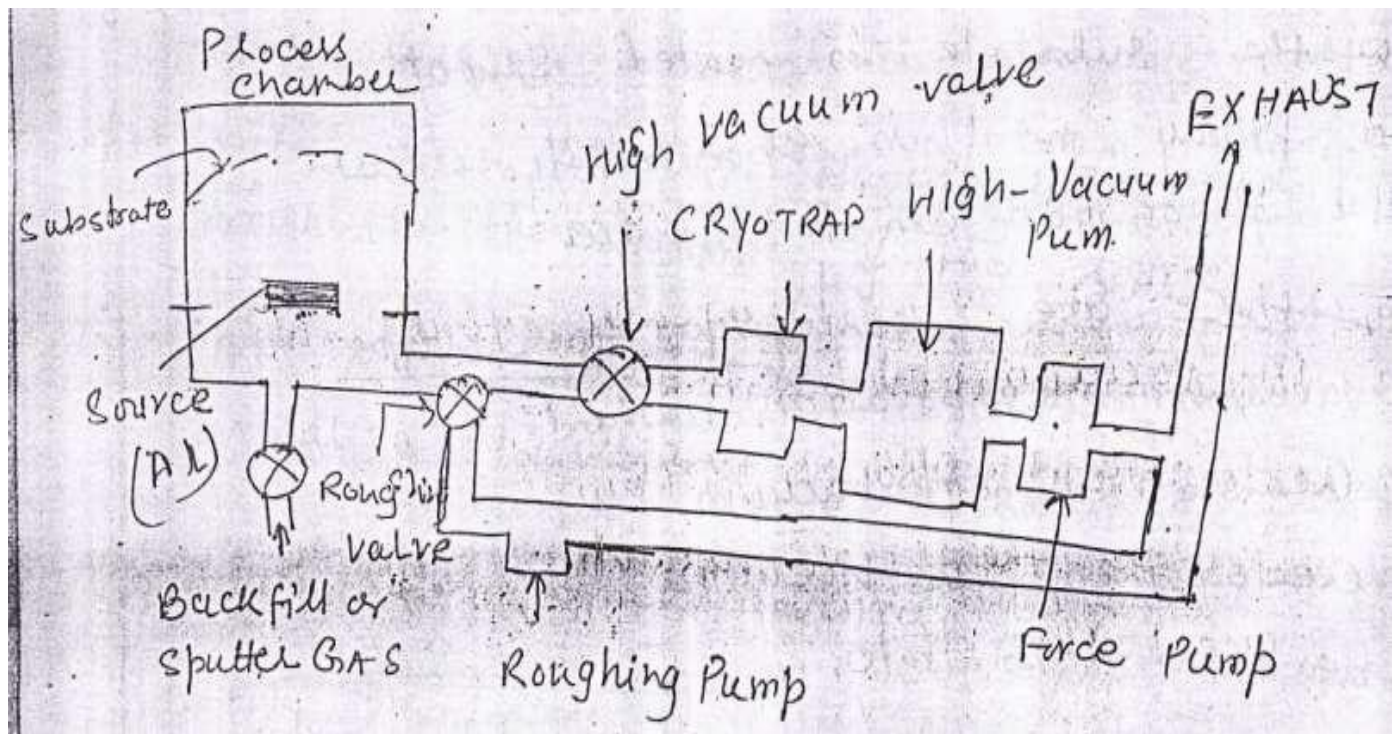 Process
chamber
High vacuum valve
EXHAUST
Substrate
CRYOTRAP
High-Vacuum
Pum.
Source
(Al)
Roughing
valve
Backfill or
Sputter GAS
Roughing Pump
Force Pump